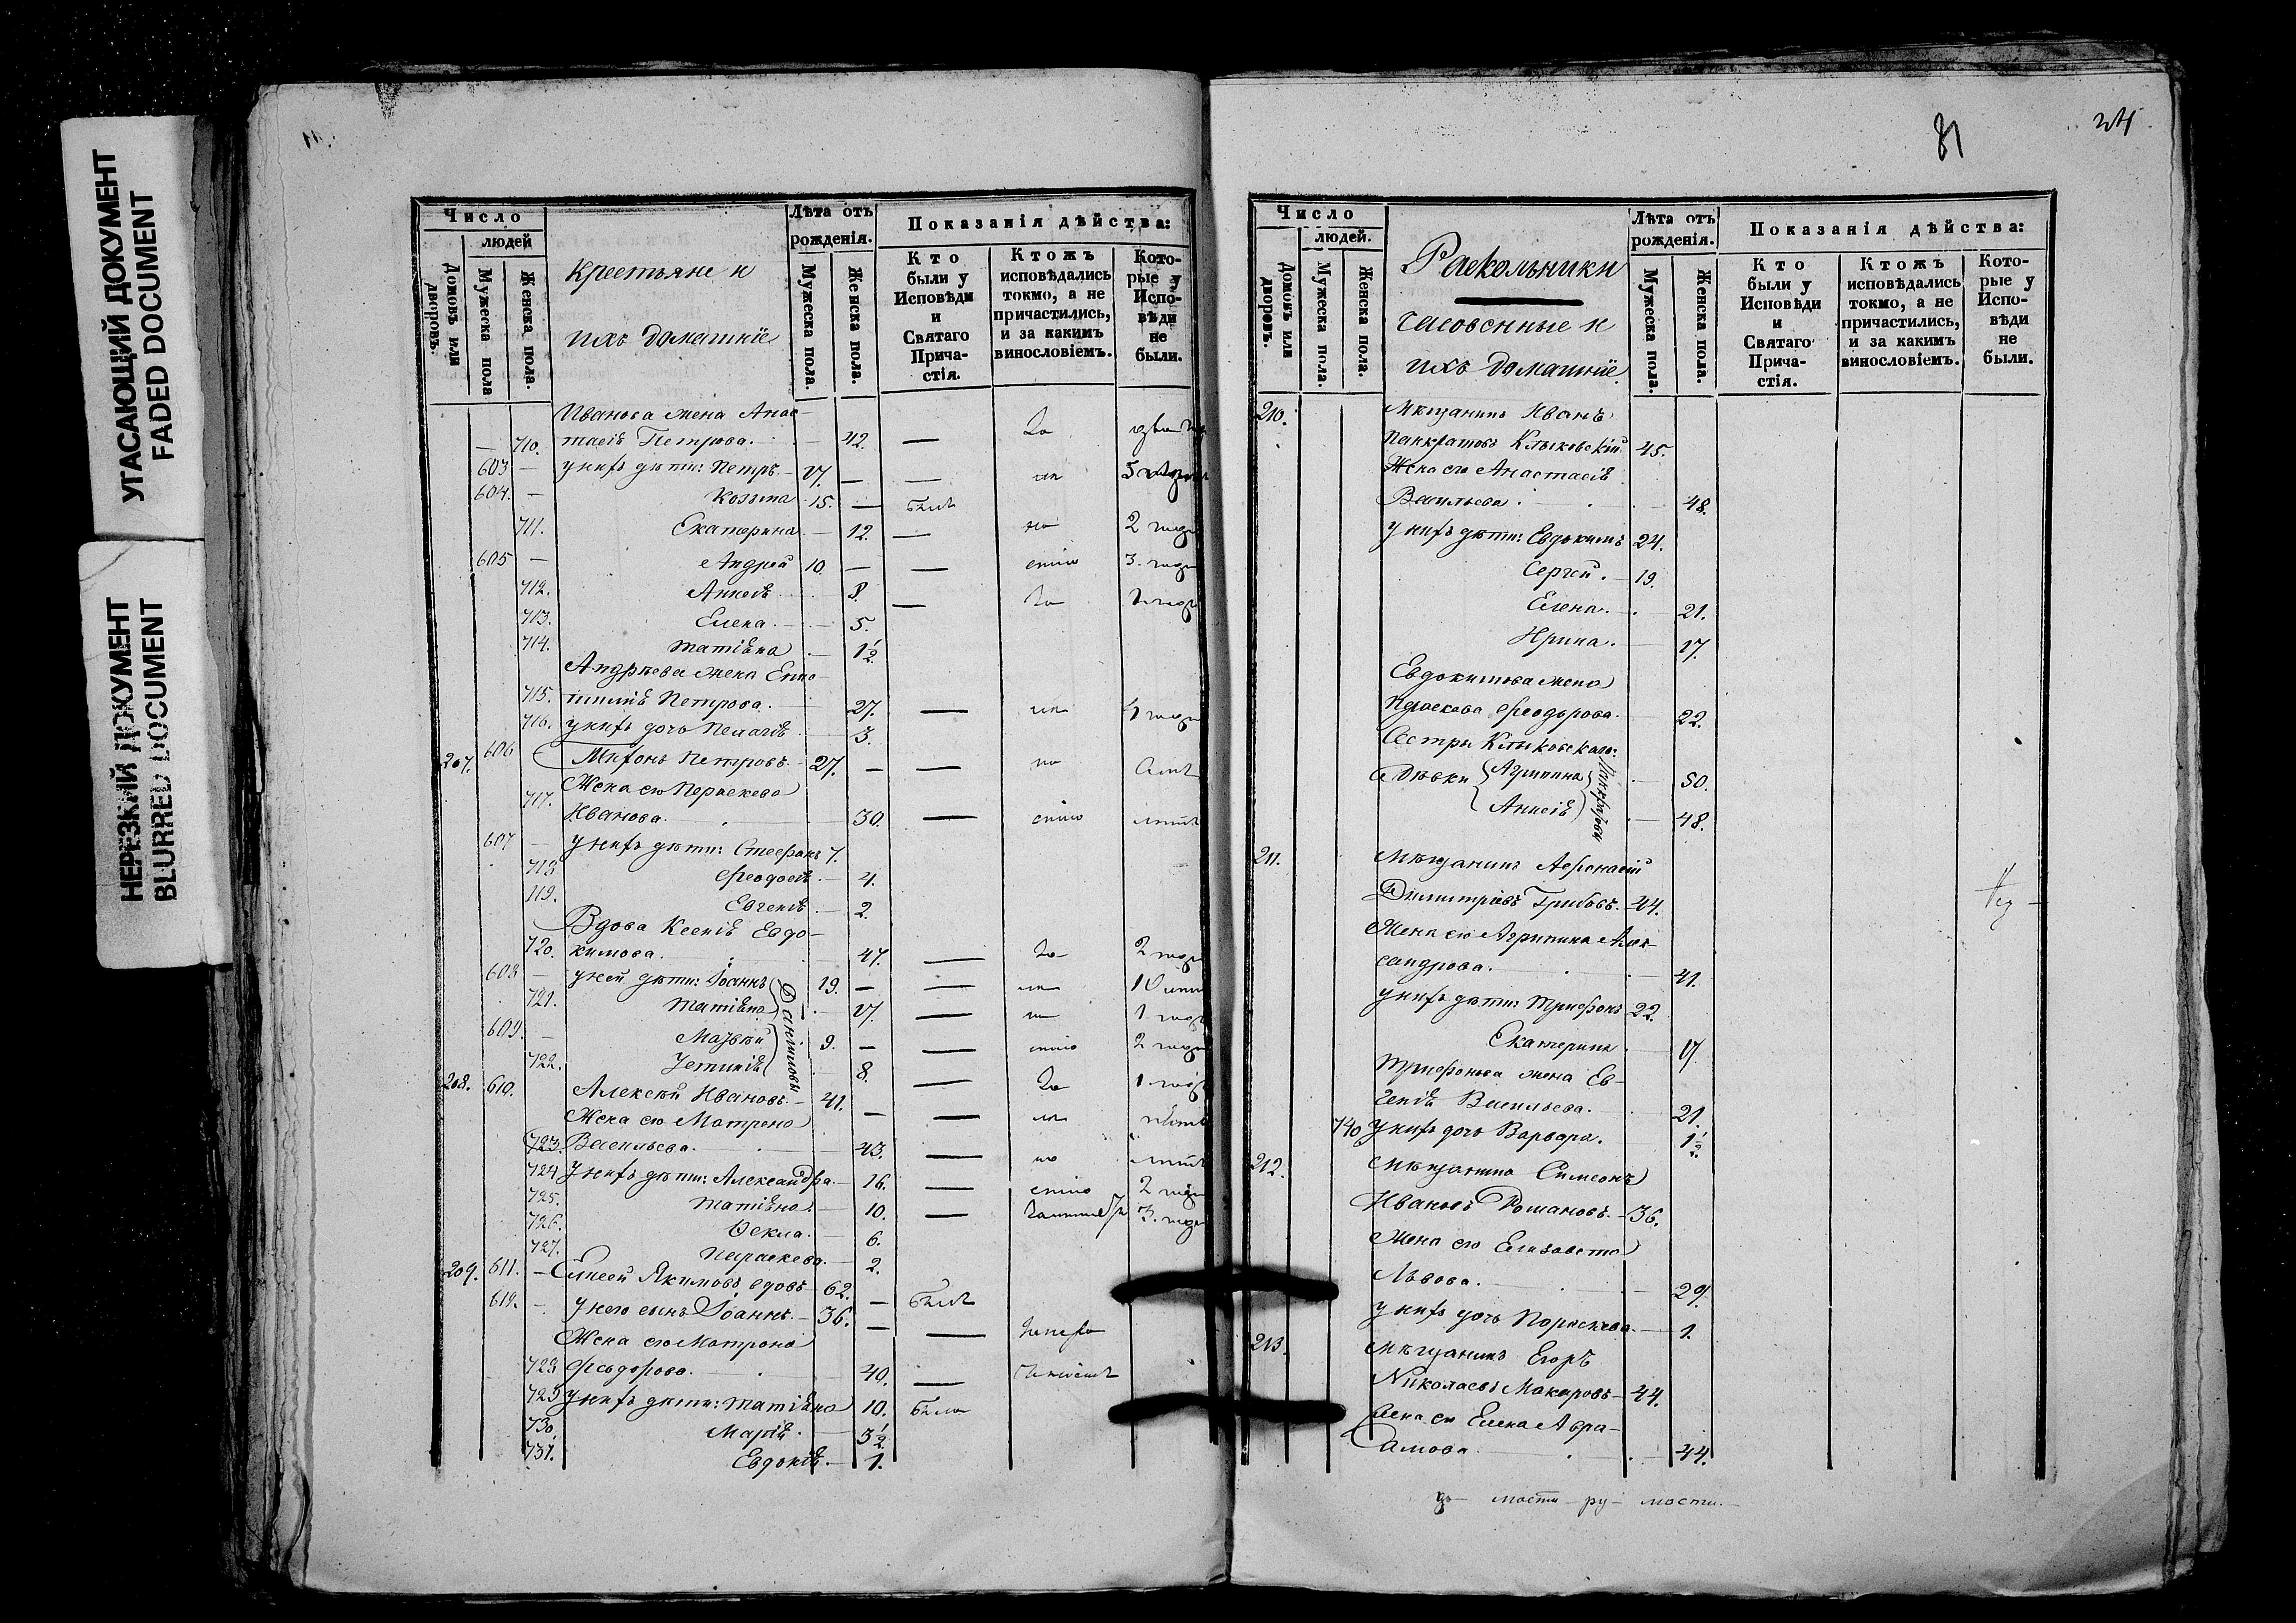 УГАСАЮЩИЙ ДОКУМЕНТ
FADED DOCUMENT
НЕРЕЗКИЙ ДОКУМЕНТ
BLURRED DOCUMENT
Число
людей
Домовъ или дворовъ.
Мужеска пола
Женска пола.
Крестьяне и
ихъ домашніе
Лѣта отъ рожденія.
Мужеска пола.
Женска пола.
Показанія дѣйства:
Кто были у Исповѣди и Святаго Прича-стія.
Ктожъ исповѣдались токмо, а не причастились, и за какимъ винословіемъ.
Кото-рые у Испо-вѣди не были.
Иванова жена Анас-
710. тасія Петрова. 42. — за
603 — у нихъ дѣти: Петръ. — 17. — —
604. — Козьма 15. — былъ
711. Екатерина — 12. — 2
605 — Андрей 10. — — 3.
712. Анисія 8. — за
713. Елена. — 5.
714. Татіана — 1½
Андреева жена Епис-
715. тимія Петрова. 27. —
716. у нихъ дочь Пелагія 3.
207. 606 Миронъ Петровъ. 27. — —
Жена его Параскева
717. Иванова. 30. —
607 — у нихъ дѣти: Стефанъ 7.
718 Феодосія — 4.
719. Евгенія — 2.
Вдова Ксенія Евдо-
720. кимова. 47. — за 2
608 — у ней дѣти: Іоаннъ 19. — —
721. Татіана — 17. — 1
609. — Матвѣй 9. — — 2
722. Устинія 8. — за 1.
Даниловы
208. 610. Алексѣй Ивановъ. — 41. — —
Жена его Матрона
723. Васильева. 43. —
724. У нихъ дѣти: Александра — 16. — 2
725. Татіана — 10. — 3.
726. Фекла. — 6.
727. Параскева. — 2.
209. 611. — Елисей Якимовъ вдовъ 62. — былъ
612. — у него сынъ Іоаннъ. — 36. — —
Жена его Матрона
728 Феодорова. 40. —
729 у нихъ дѣти: Татіана 10. была
730. Марія. — 3½
731. Евдокія. — 1.
81
24
Число
людей.
Домовъ или дворовъ.
Мужеска пола.
Женска пола.
Раскольники
часовенные и
ихъ домашніе
Лѣта отъ рожденія.
Мужеска пола.
Женска пола.
Показанія дѣйства:
Кто были у Исповѣди и Святаго Прича-стія.
Ктожъ исповѣдались токмо, а не причастились, и за какимъ винословіемъ.
Кото-рые у Испо-вѣди не были.
210. Мѣщанинъ Иванъ
Панкратовъ Клыковскій 45.
Жена его Анастасія
Васильева. 48.
у нихъ дѣти: Евдокимъ 24.
Сергѣй. — 19.
Елена. — 21.
Ирина. — 17.
Евдокимова жена
Параскева Феодорова. 22.
Сестры Клыковскаго:
Дѣвки Агрипина 50.
Анисія — 48.
Панкратовы
211. Мѣщанинъ Афонасій
Димитріевъ Грибовъ. — 44.
Жена его Агрипина Алек-
сандрова. 41.
у нихъ дѣти: Трифонъ 22.
Екатерина 17.
Трифонова жена Ев-
генія Васильева. 21.
740 у нихъ дочь Варвара. 1½
212. Мѣщанинъ Симеонъ
Ивановъ Романовъ. — 36.
Жена его Елизавета
Львова. 29.
у нихъ дочь Параскева. — 1.
213. Мѣщанинъ Егоръ
Николаевъ Макаровъ — 44.
Жена его Елена Авра-
амова. 44.